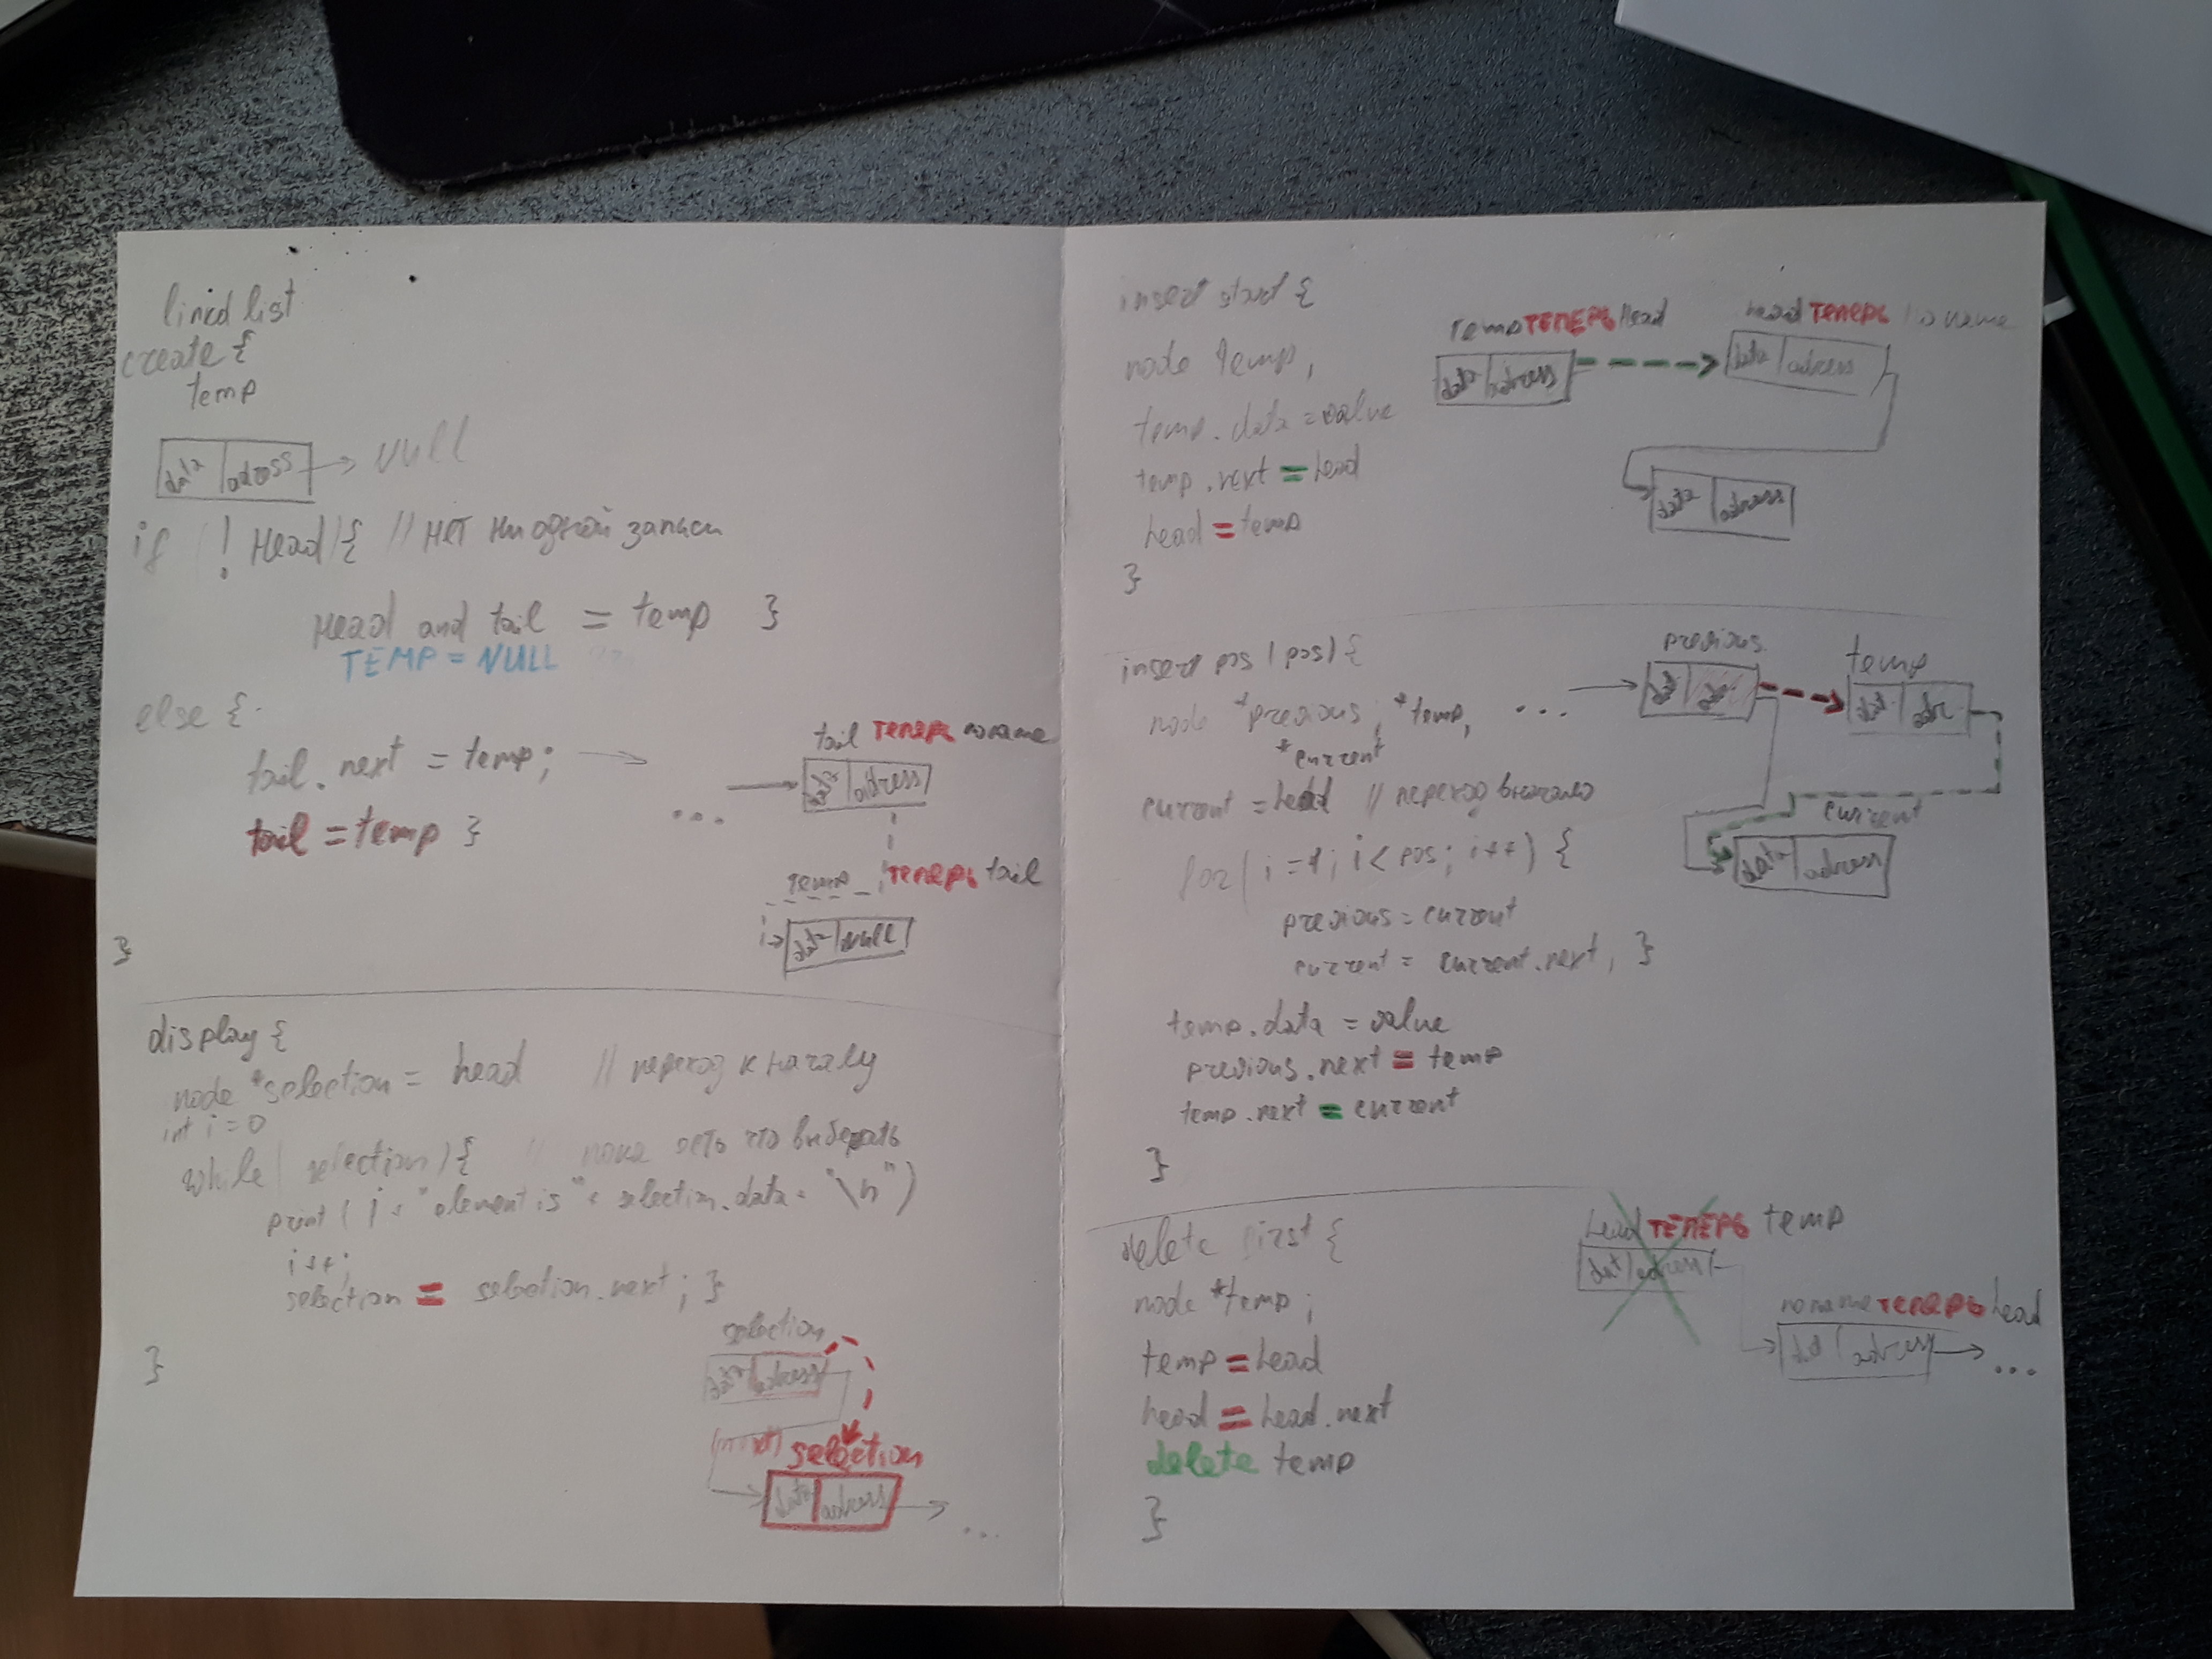 lincd list
create {
temp
data adress → NULL
if (! Head) { // нет ни одной записи
Head and tail = temp }
TEMP = NULL
else {
tail.next = temp; →
tail = temp }
tail ТЕПЕРЬ noname
... → data adress
temp ТЕПЕРЬ tail
data NULL
}
display {
node *selection = head // переход к началу
int i = 0
while (selection) { // пока есть что выберать
print ( i < "element is" < selection.data < "\n")
i++;
selection = selection.next; }
}
selection
data adress
selection
data adress → ...
insert start {
node temp,
temp.data = value
temp.next = head
head = temp
}
temp ТЕПЕРЬ Head
head ТЕПЕРЬ noname
data adress
data adress
data adress
insert pos (pos) {
node *previous; *temp,
*current
current = head // переход вначало
for ( i = 1; i < pos; i++) {
previous = current
current = current.next, }
temp.data = value
previous.next = temp
temp.next = current
}
previous
temp
...
current
data adress
delete first {
node *temp;
temp = head
head = head.next
delete temp
}
head ТЕПЕРЬ temp
dat adress
noname ТЕПЕРЬ head
dat adress → ...